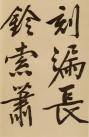 刻漏長
鈴索蕭